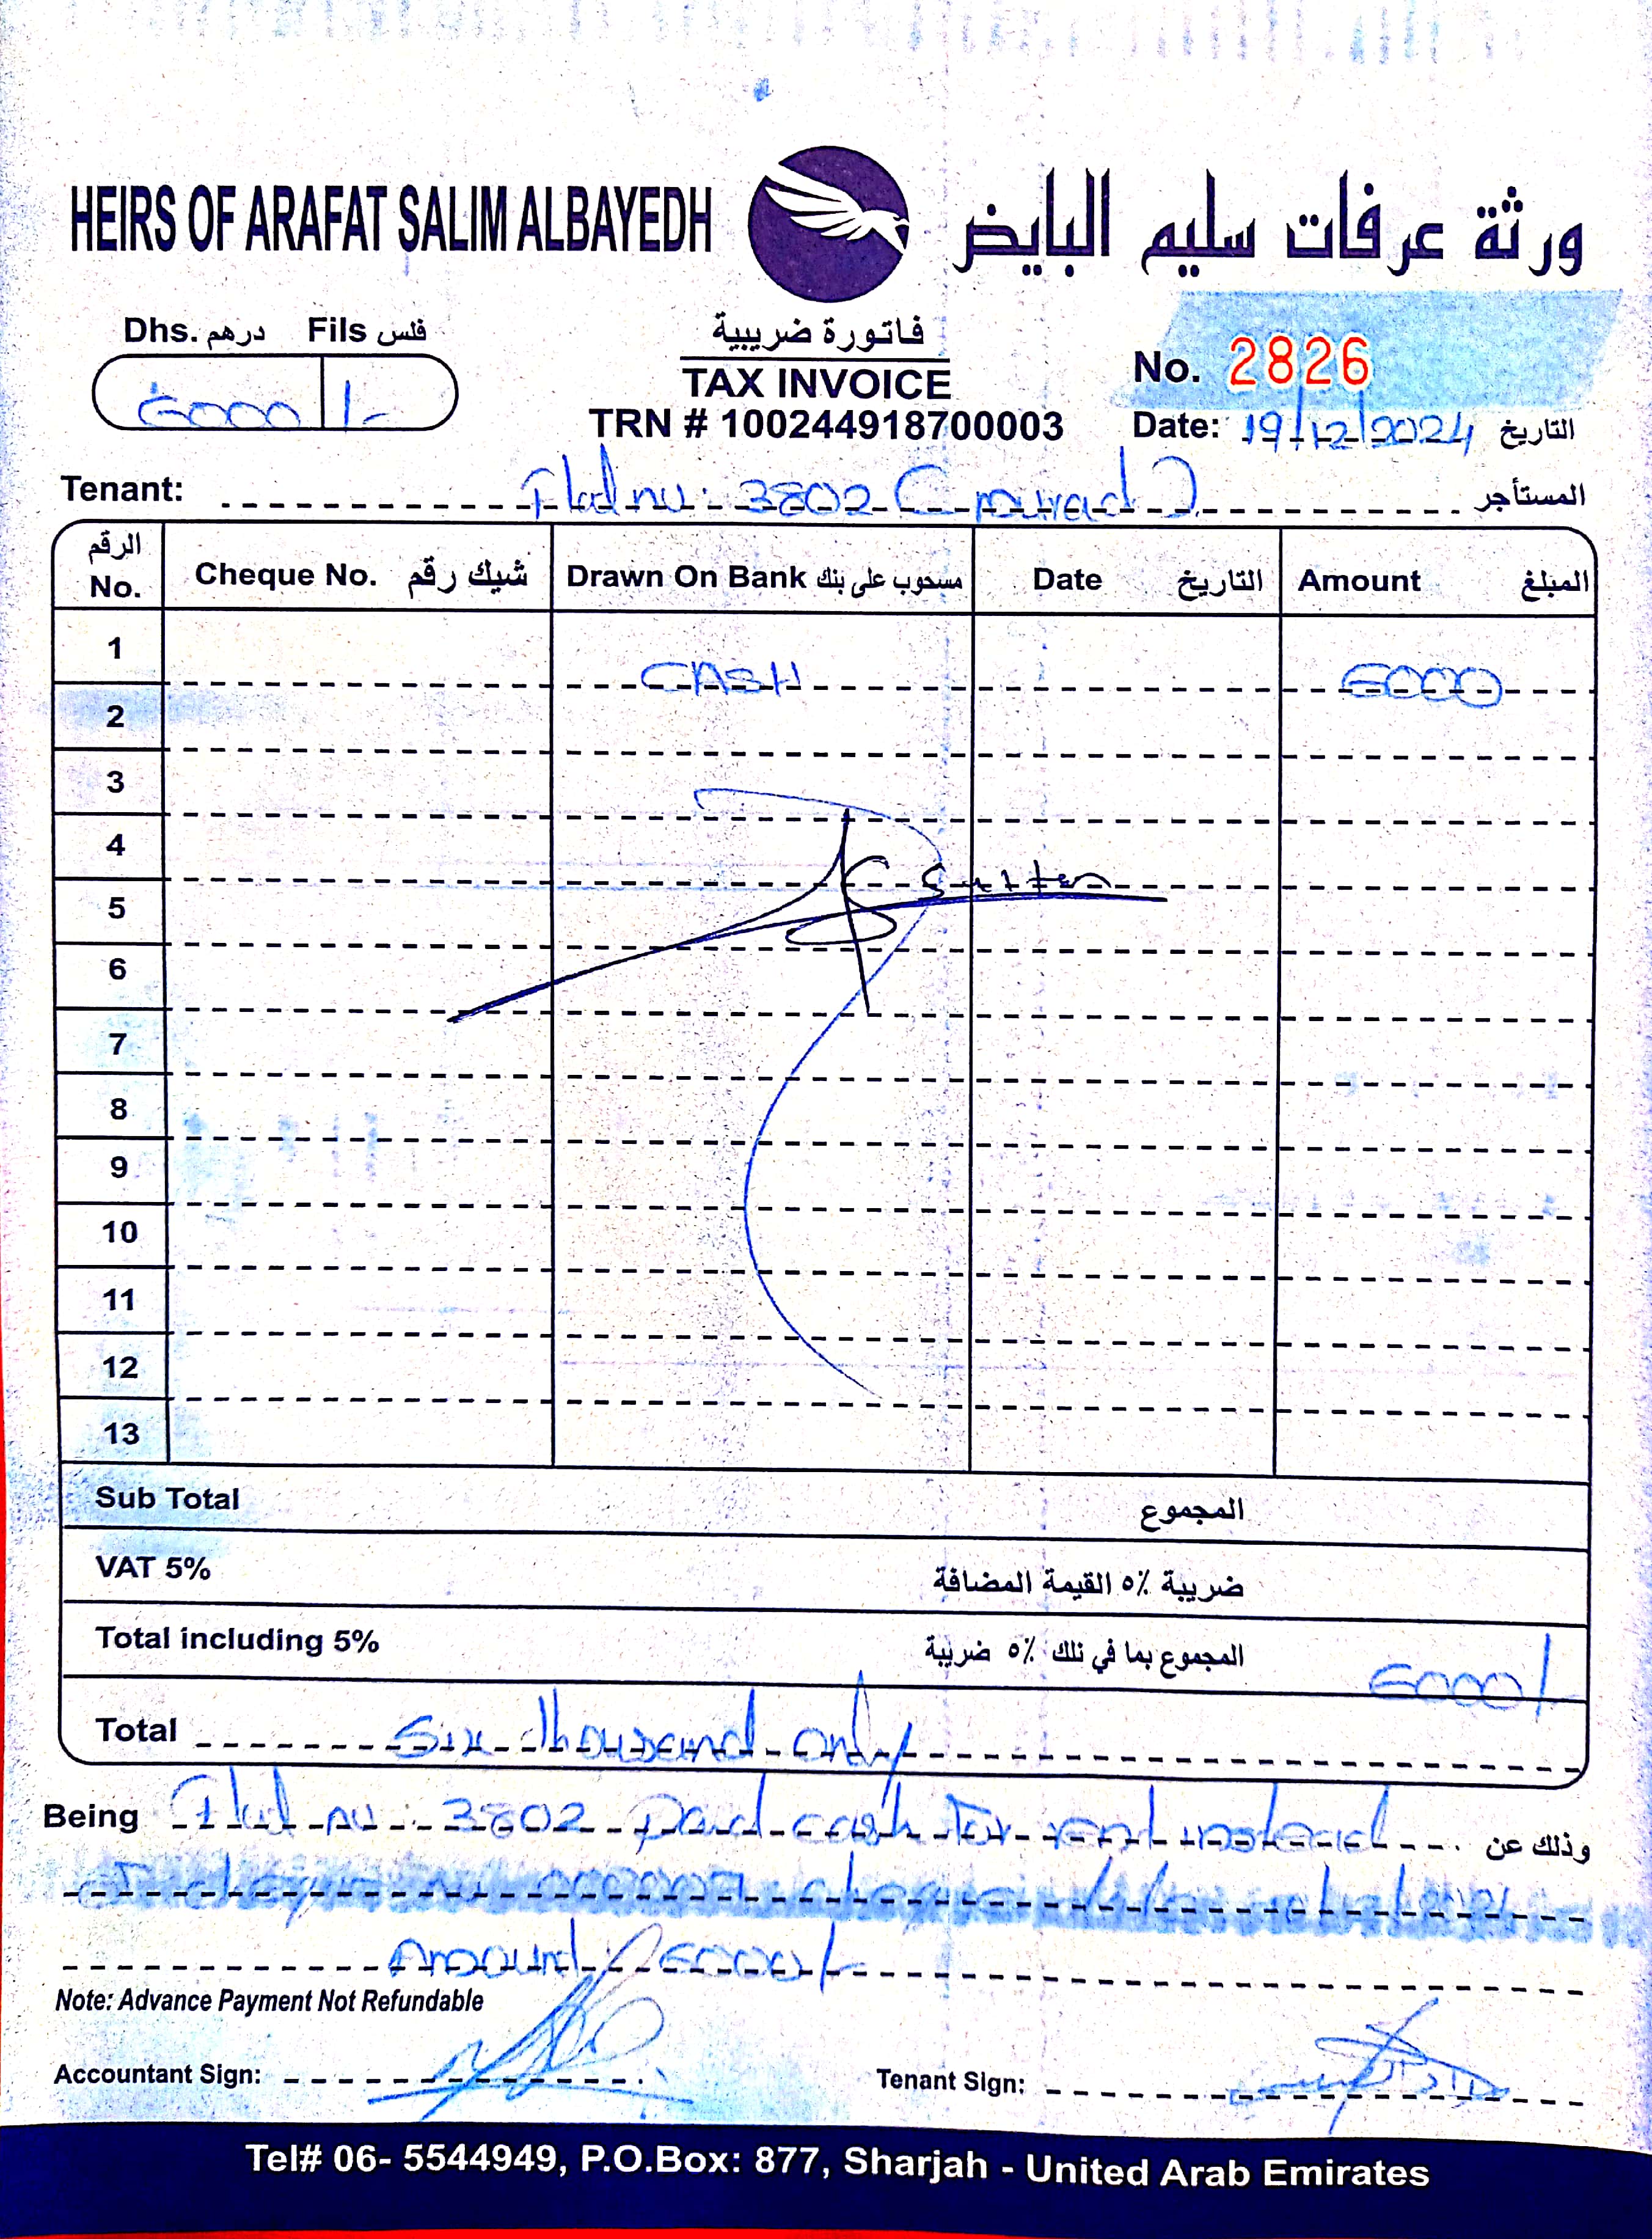 HEIRS OF ARAFAT SALIM ALBAYEDH
ورثة عرفات سليم البايض
Dhs. درهم Fils فلس
6000 /-
فاتورة ضريبية
TAX INVOICE
TRN # 100244918700003
No. 2826
Date: 19/12/2024 التاريخ
Tenant: Flat no: 3802 (murad) المستأجر
الرقم No. Cheque No. شيك رقم Drawn On Bank مسحوب على بنك Date التاريخ Amount المبلغ
1 CASH 6000
2
3
4
5
6
7
8
9
10
11
12
13
Sub Total المجموع
VAT 5% ضريبة ٥٪ القيمة المضافة
Total including 5% المجموع بما في ذلك ٥٪ ضريبة 6000/
Total Six thousand only
Being Flat no: 3802 paid cash for rent instead وذلك عن
cheque no 000007 cheque
Amount: 6000/-
Note: Advance Payment Not Refundable
Accountant Sign:
Tenant Sign:
Tel# 06- 5544949, P.O.Box: 877, Sharjah - United Arab Emirates